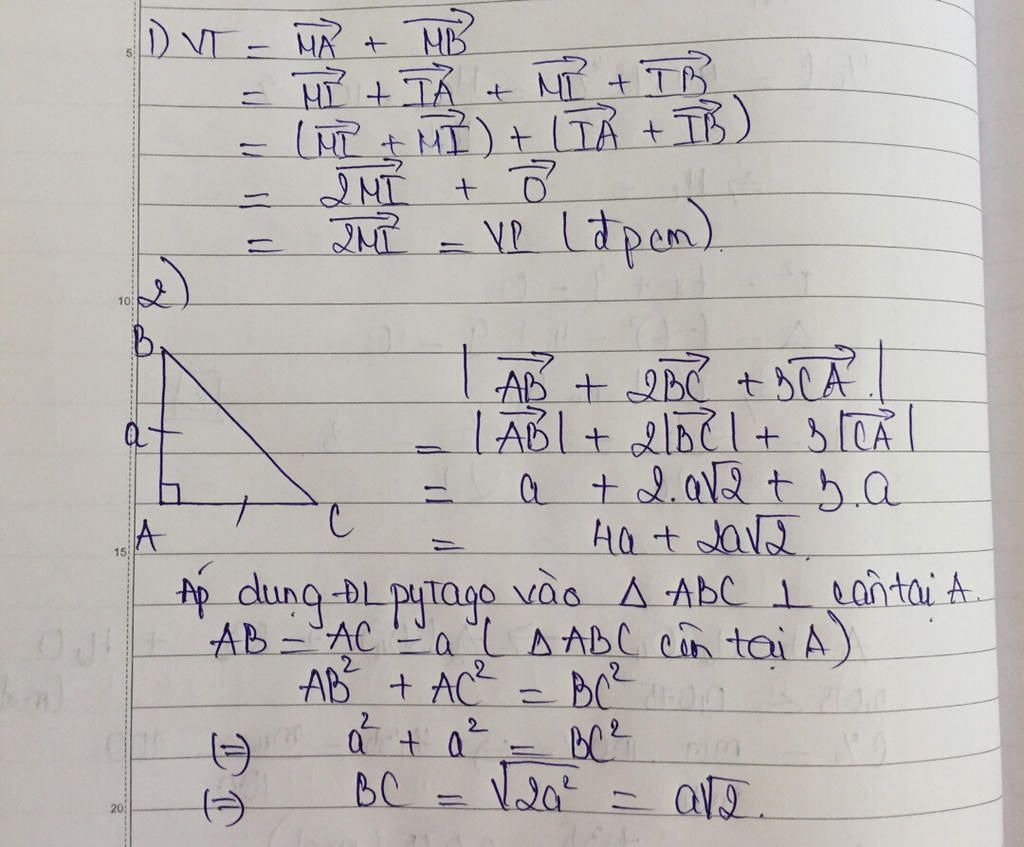 5
1) VT = MA + MB
= MI + IA + MI + IB
= (MI + MI) + (IA + IB)
= 2MI + 0
= 2MI = VP (đpcm).
10
2)
B
a
A
C
| AB + 2BC + 3CA |
= |AB| + 2|BC| + 3|CA|
= a + 2.a√2 + 3.a
= 4a + 2a√2.
15
Áp dụng ĐL pyTago vào Δ ABC ⊥ cân tại A.
AB = AC = a ( Δ ABC cân tại A)
AB² + AC² = BC²
(=) a² + a² = BC²
(=) BC = √2a² = a√2.
20